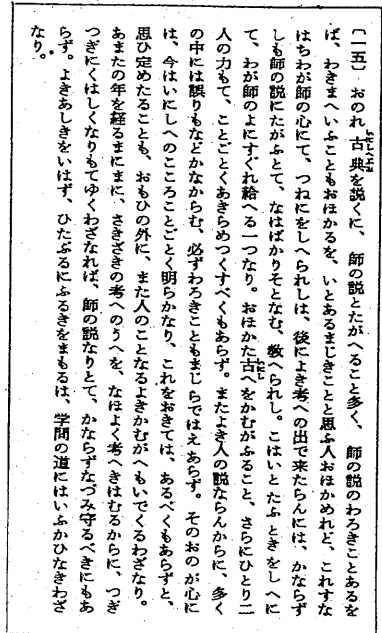 〔一五〕 おのれ古典を説くに、師の説とたがへること多く、師の説のわろきことあるを
ば、わきまへいふこともおほかるを、いとあるまじきことと思ふ人おほかめれど、これすな
はちわが師の心にて、つねにをしへられしは、後によき考への出で来たらんには、かならず
しも師の説にたがふとて、なはばかりそとなむ、教へられし。こはいとたふときをしへに
て、わが師のよにすぐれ給へる一つなり。おほかた古へをかむがふること、さらにひとり二
人の力もて、ことごとくあきらめつくすべくもあらず。またよき人の説ならんからに、多く
の中には誤りもなどかなからむ、必ずわろきこともまじらではえあらず。そのおのが心に
は、今はいにしへのこころことごとく明らかなり、これをおきては、あるべくもあらずと、
思ひ定めたることも、おもひの外に、また人のことなるよきかむがへもいでくるわざなり。
あまたの年を経るまにまに、さきざきの考へのうへを、なほよく考へきはむるからに、つぎ
つぎにくはしくなりもてゆくわざなれば、師の説なりとて、かならずなづみ守るべきにもあ
らず。よきあしきをいはず、ひたぶるにふるきをまもるは、学問の道にはいふかひなきわざ
なり。